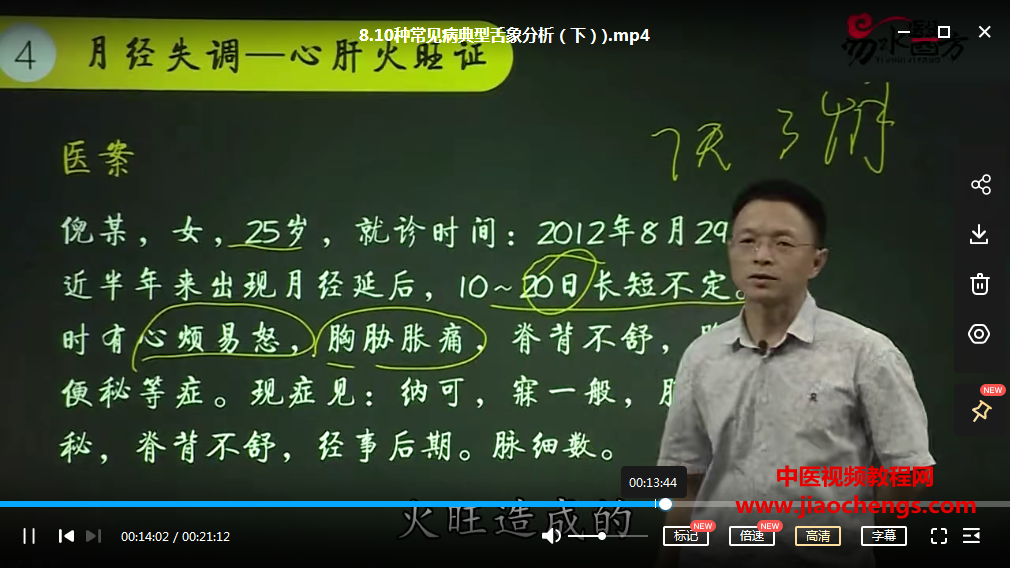 8.10种常见病典型舌象分析（下）).mp4
4 月经失调—心肝火旺证
医案
7天
倪某，女，25岁，就诊时间：2012年8月29
近半年来出现月经延后，10～20日长短不定。
时有心烦易怒，胸胁胀痛，脊背不舒，
便秘等症。现症见：纳可，寐一般，
秘，脊背不舒，经事后期。脉细数。
NEW
00:13:44
中医视频教程网
www.jiaochengs.com
火旺造成的
00:14:02 / 00:21:12
标记 NEW 倍速 NEW 高清 字幕